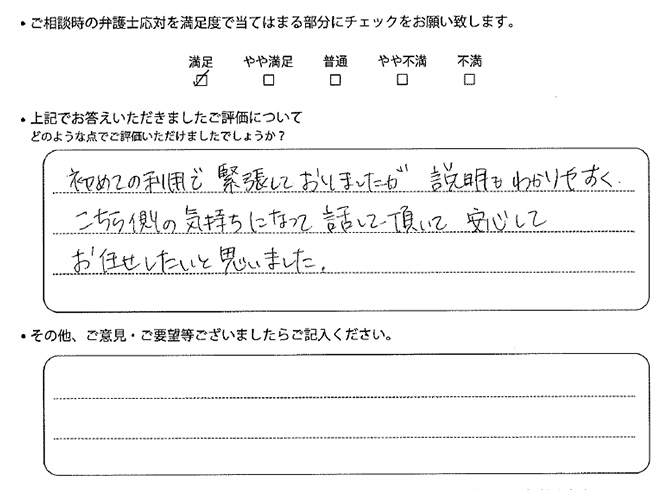 ・ご相談時の弁護士応対を満足度で当てはまる部分にチェックをお願い致します。
満足 やや満足 普通 やや不満 不満
・上記でお答えいただきましたご評価について
どのような点でご評価いただけましたでしょうか？
初めての利用で緊張しておりましたが 説明もわかりやすく、
こちら側の気持ちになって話して頂いて 安心して
お任せしたいと思いました。
・その他、ご意見・ご要望等ございましたらご記入ください。